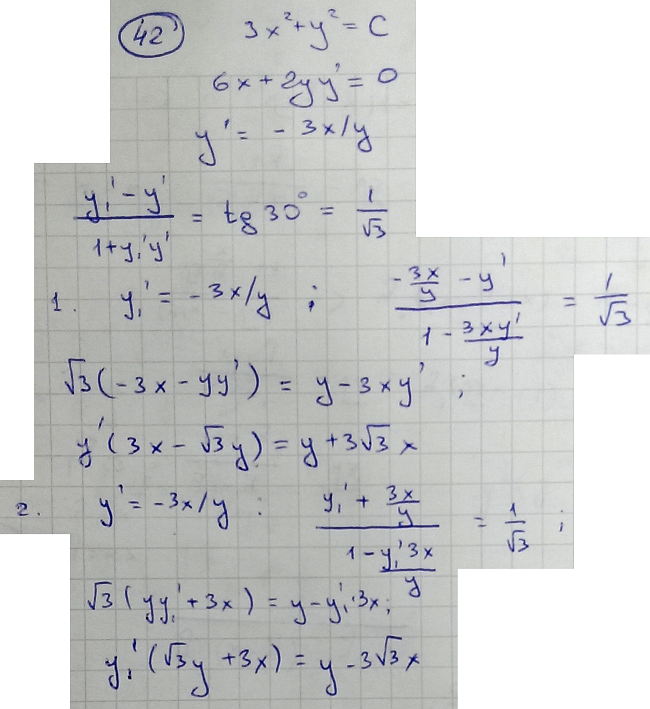 42 3x² + y² = C
6x + 2yy' = 0
y' = - 3x/y
(y₁' - y')/(1 + y₁'y') = tg 30° = 1/√3
1. y₁' = - 3x/y ; (- 3x/y - y')/(1 - 3xy'/y) = 1/√3
√3(-3x - yy') = y - 3xy' ;
y'(3x - √3y) = y + 3√3x
2. y' = -3x/y : (y₁' + 3x/y)/(1 - y₁'3x/y) = 1/√3 ;
√3(yy₁' + 3x) = y - y₁'·3x;
y₁'(√3y + 3x) = y - 3√3x